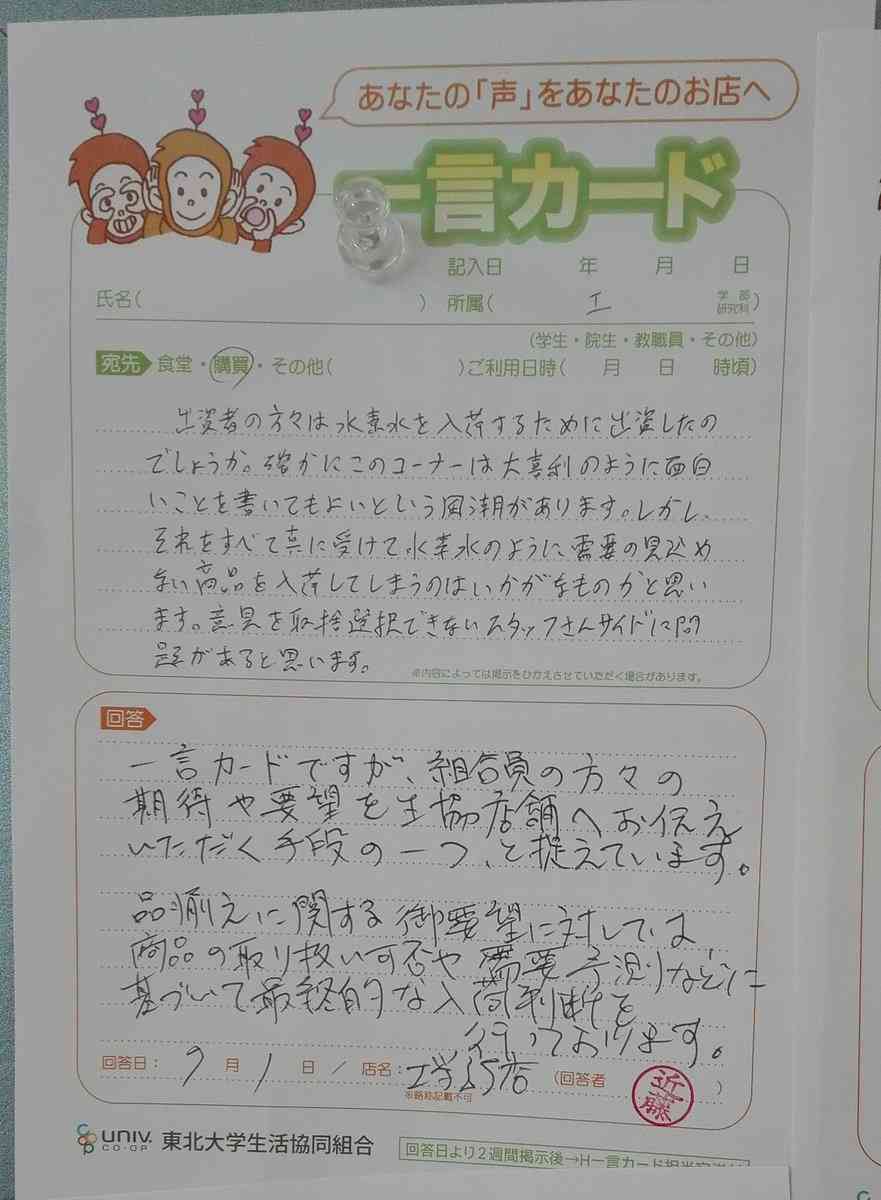 あなたの「声」をあなたのお店へ
一言カード
記入日 年 月 日
氏名( ) 所属( 工 学部 研究科)
(学生・院生・教職員・その他)
宛先 食堂・購買・その他( )ご利用日時( 月 日 時頃)
出資者の方々は水素水を入荷するために出資したの
でしょうか。確かにこのコーナーは大喜利のように面白
いことを書いてもよいという風潮があります。しかし、
それをすべて真に受けて水素水のように需要の見込め
ない商品を入荷してしまうのはいかがなものかと思い
ます。意見を取捨選択できないスタッフさんサイドに問
題があると思います。
※内容によっては掲示をひかえさせていただく場合があります。
回答
一言カードですが、組合員の方々の
期待や要望を生協店舗へお伝え
いただく手段の一つ、と捉えています。
品揃えに関する御要望に対しては
商品の取り扱い可否や需要予測などに
基づいて最終的な入荷判断を
行っております。
回答日: 9 月 1 日 / 店名: 工学部店 (回答者 近藤 )
※略称記載不可
UNIV. CO-OP 東北大学生活協同組合
回答日より2週間掲示後→H一言カード担当宛